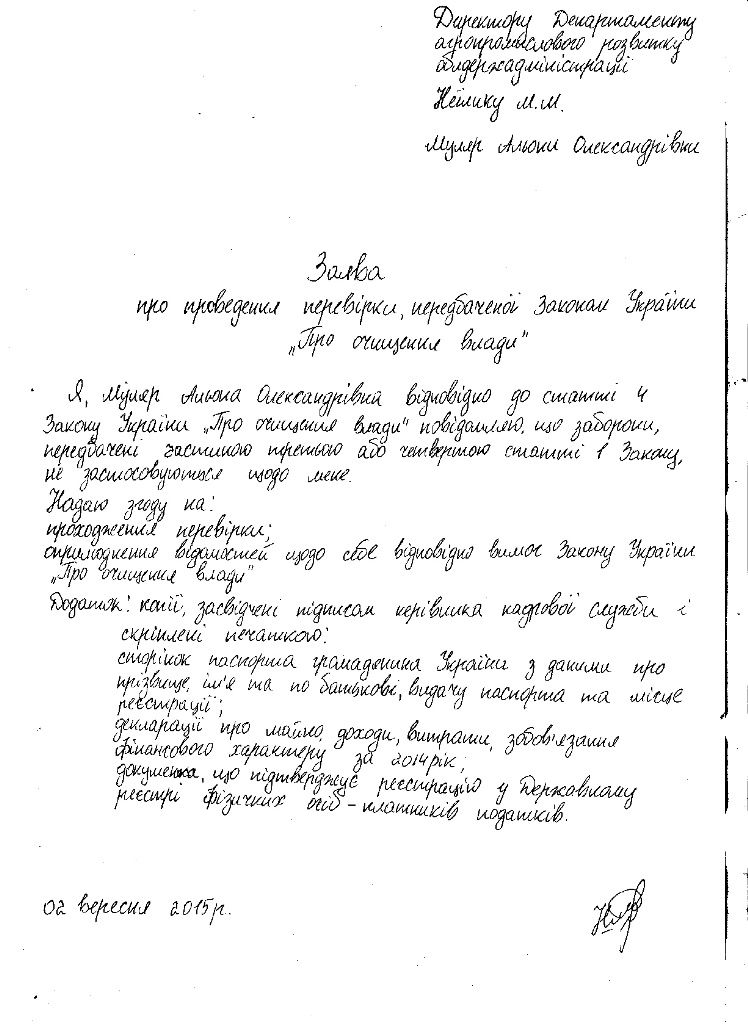 Директору Департаменту
агропромислового розвитку
облдержадміністрації
Неїлику М.М.
Муляр Альони Олександрівни
Заява
про проведення перевірки, передбаченої Законом України
„Про очищення влади"
Я, Муляр Альона Олександрівна відповідно до статті 4
Закону України „Про очищення влади" повідомляю, що заборони,
передбачені частиною третьою або четвертою статті 1 Закону,
не застосовуються щодо мене.
Надаю згоду на:
проходження перевірки;
оприлюднення відомостей щодо себе відповідно вимог Закону України
„Про очищення влади"
Додаток: копії, засвідчені підписом керівника кадрової служби і
скріплені печаткою:
сторінок паспорта громадянина України з даними про
прізвище, ім'я та по батькові, видачу паспорта та місце
реєстрації;
декларації про майно, доходи, витрати, зобов'язання
фінансового характеру за 2014 рік;
документа, що підтверджує реєстрацію у Державному
реєстрі фізичних осіб – платників податків.
02 вересня 2015 р.